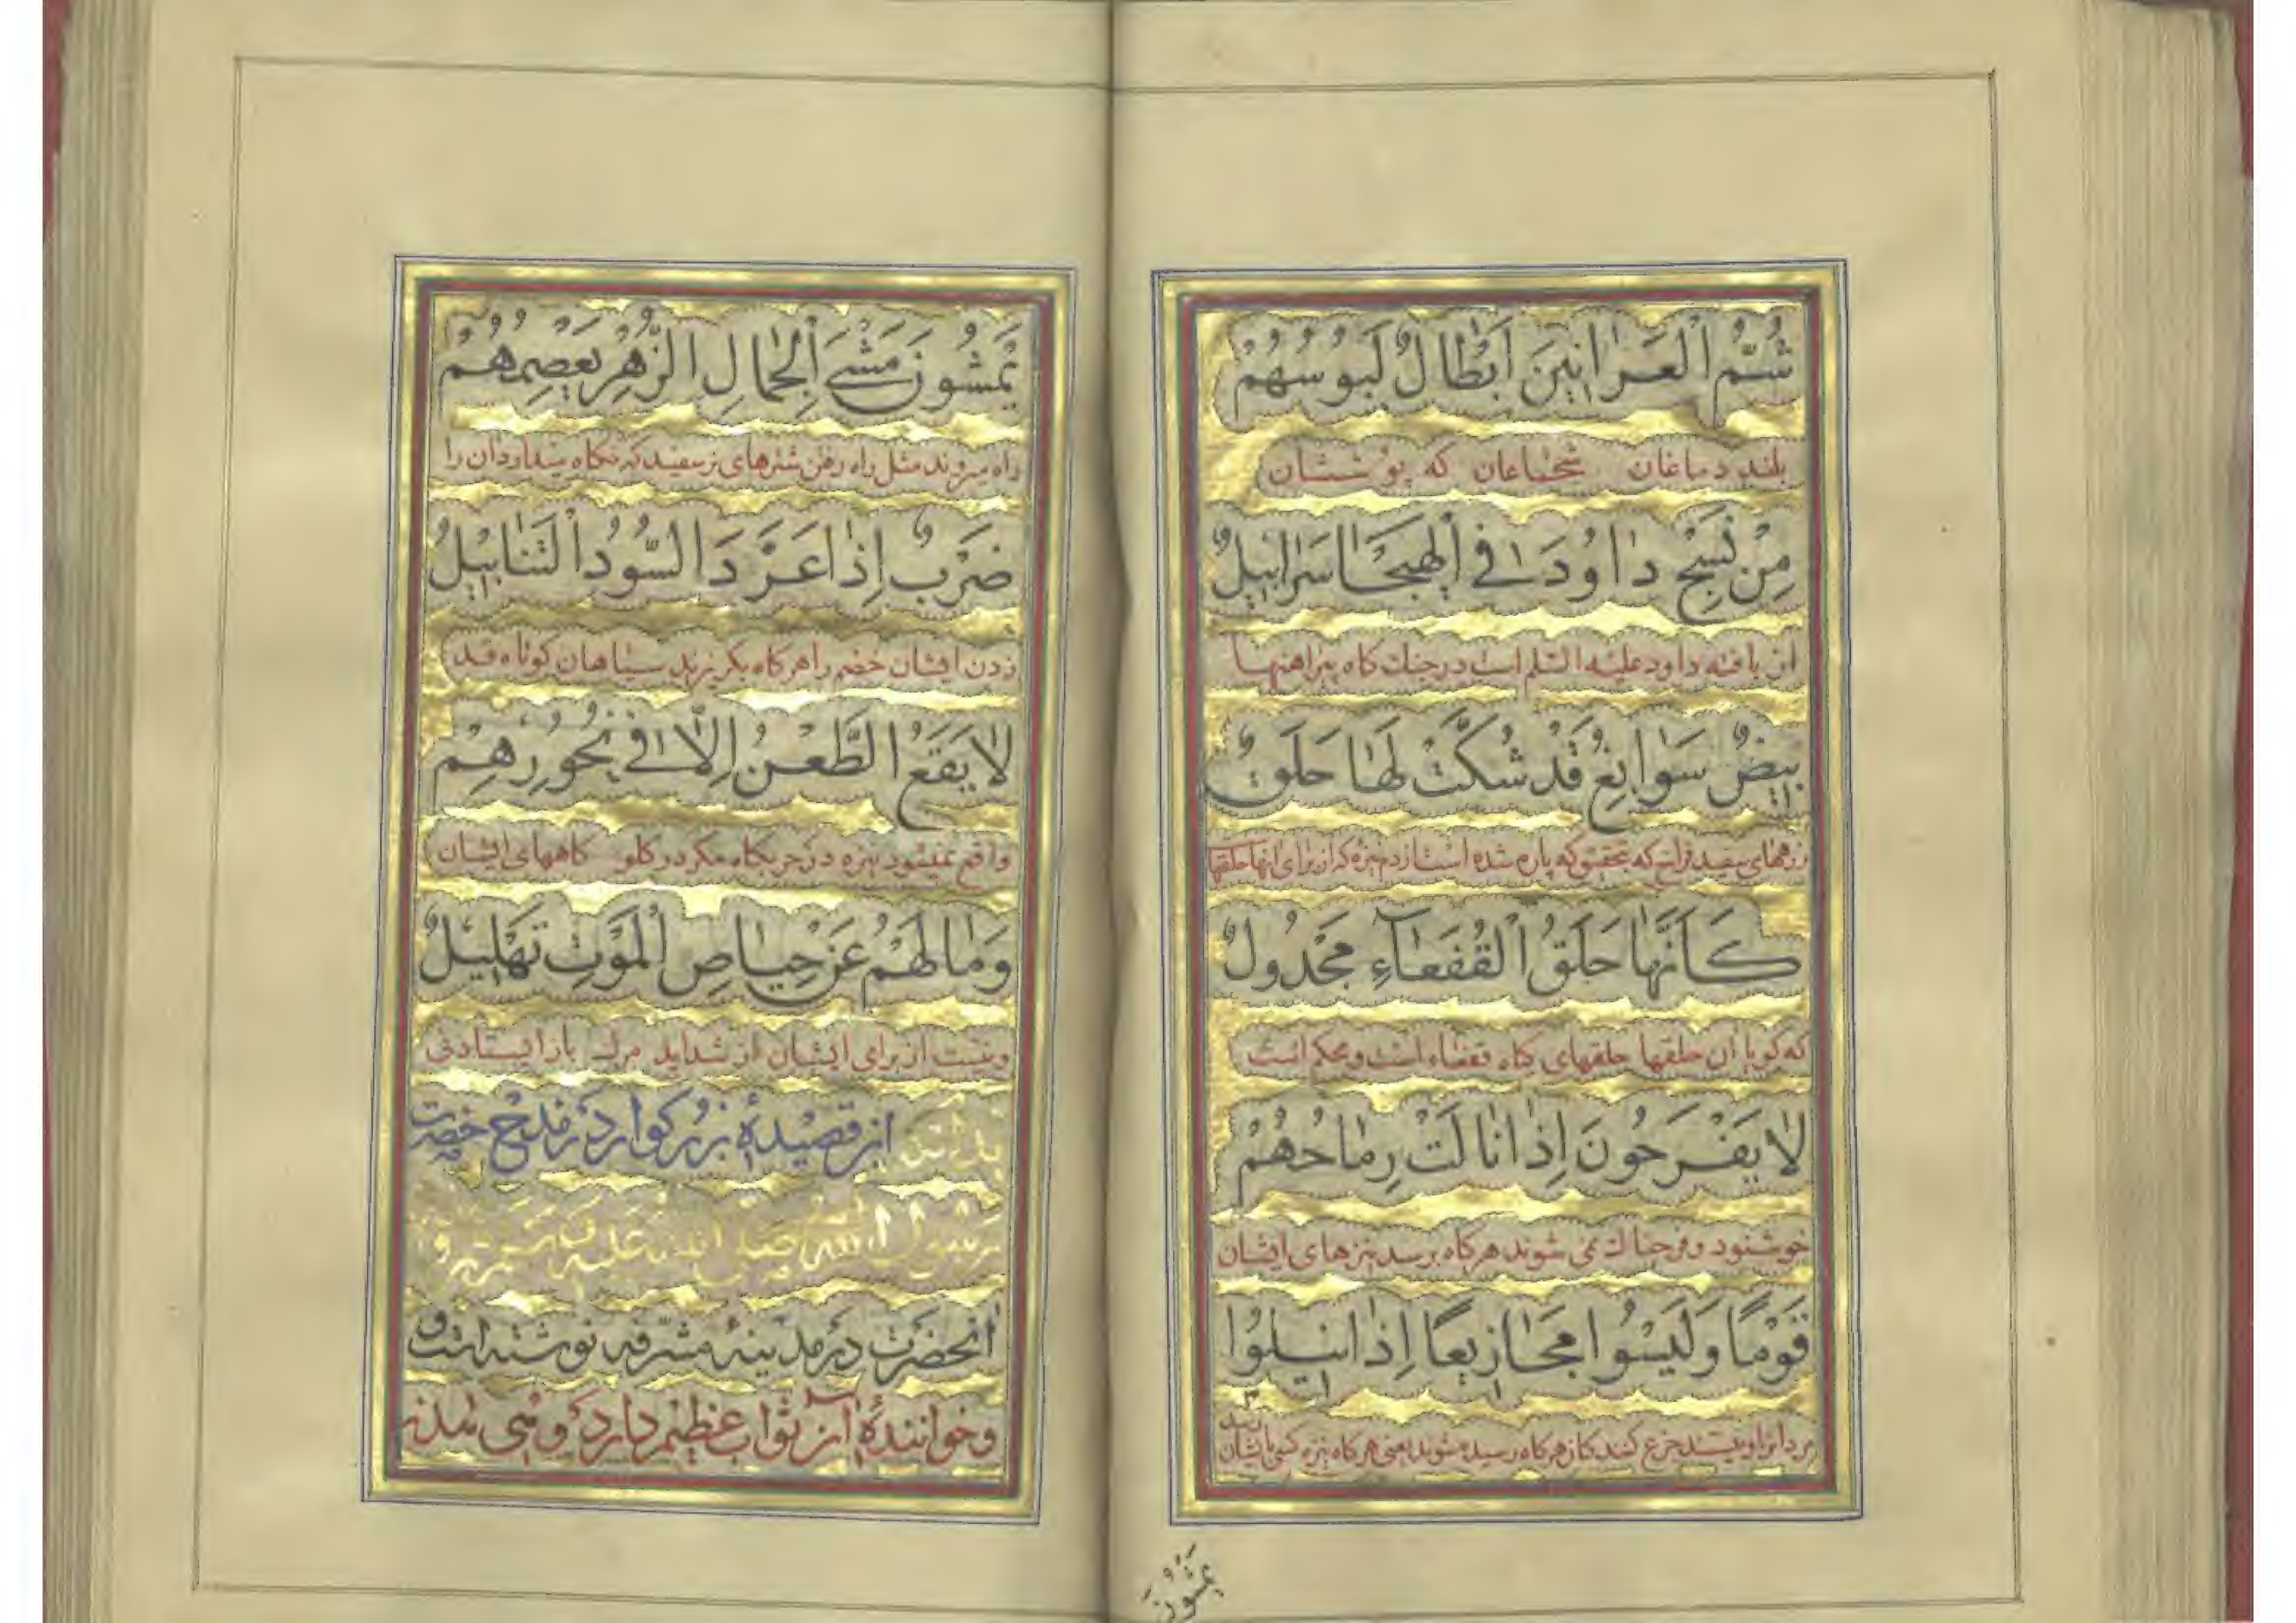 شُمُّ الْعَرَانِينَ اَبْطَالٌ لَبُوسُهُمْ
بلند دماغان شجاعان که پوششان
مِنْ نَسْجِ دَاوُدَ فِي الْهَيْجَا سَرَابِيلٌ
از بافته داود علیه السلم است در جنك كاه پیراهنها
بِيضٌ سَوَابِغُ قَدْ شُكَّتْ لَهَا حَلَقٌ
زرههای سفید فراخ که بتحقیق که پاره شده است از دم نیزه که از برای انها حلقها
كَاَنَّهَا حَلَقُ الْقُفَعَآءِ مَجْدُولٌ
که کویا ان حلقها حلقهای کیاه قفعاء است و محکم است
لَا يَفْرَحُونَ اِذَا نَالَتْ رِمَاحُهُمْ
خوشنود و فرحناك نمی شوند هرکاه برسد نیزهای ایشان
قَوْمًا وَلَيْسُوا مَجَازِيعًا اِذَا نِيلُوا
مردانرا و نیستند جزع کنندکان هرکاه رسیده شوند یعنی هرکاه نیزه کسی بایشان رسد
يَمْشُونَ
يَمْشُونَ مَشْيَ الْجِمَالِ الزُّهْرِ يَعْصِمُهُمْ
راه میروند مثل راه رفتن شترهای نر سفید که نکاه میدارد ان را
ضَرْبٌ اِذَا عَرَّدَ السُّودُ التَّنَابِيلُ
زدن ایشان خصم را هرکاه بکریزند سیاهان کوتاه قد
لَا يَقَعُ الطَّعْنُ اِلَّا فِي نُحُورِهِمْ
واقع نمیشود نیزه در حربکاه مکر در کلو کاههای ایشان
وَمَا لَهُمْ عَنْ حِيَاضِ الْمَوْتِ تَهْلِيلٌ
و نیست از برای ایشان از شداید مرك باز ایستادنی
این قصیدۀ بزرکوار در مدح حضرت
رسول الله صلی الله علیه
انحضرت در مدینۀ مشرفه نوشته است و
و خوانندۀ آن ثواب عظیم دارد و